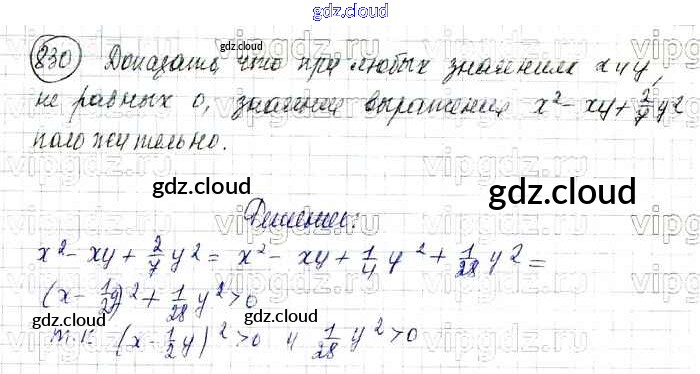 gdz.cloud
830 Доказать, что при любых значениях x и y,
не равных 0, значение выражения x² - xy + 2/7 y²
положительно.
gdz.cloud
gdz.cloud
gdz.cloud
gdz.cloud
Решение:
x² - xy + 2/7 y² = x² - xy + 1/4 y² + 1/28 y² =
(x - 1/2 y)² + 1/28 y² > 0
gdz.cloud
gdz.cloud
т.к. (x - 1/2 y)² > 0 и 1/28 y² > 0
gdz.cloud